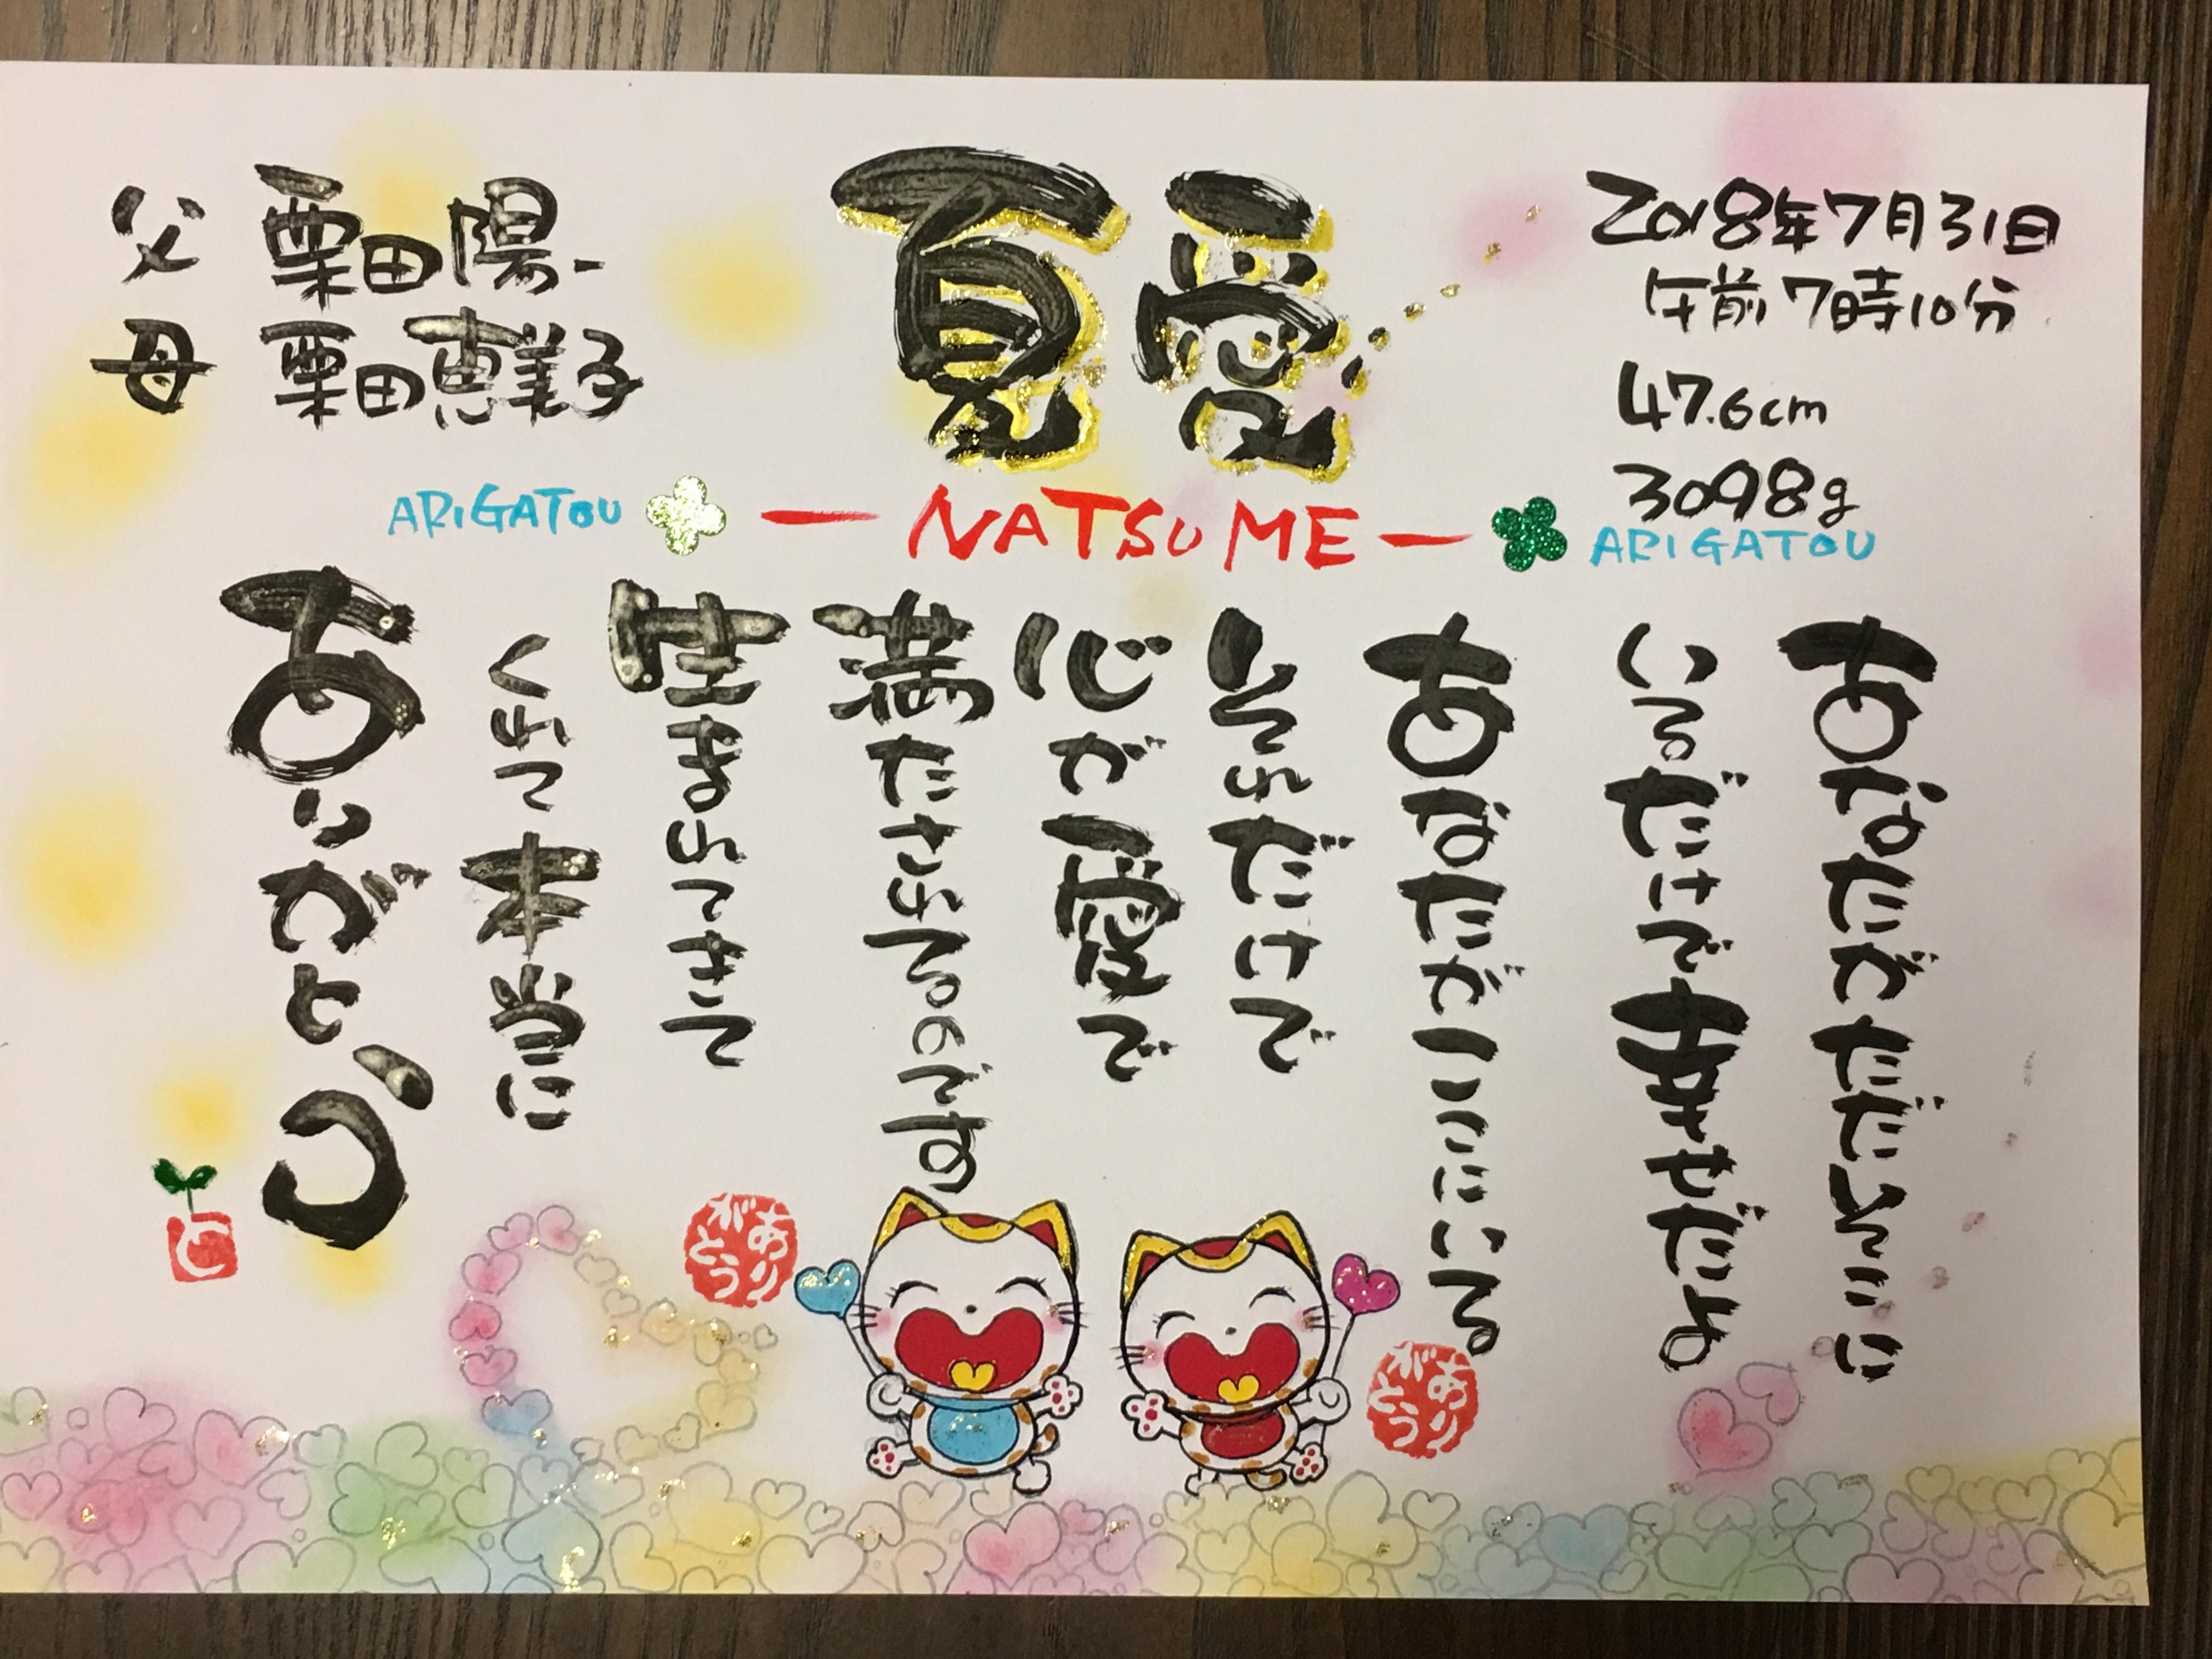 夏愛
2018年7月31日
午前7時10分
47.6cm
3098g
父 栗田陽一
母 栗田恵美子
ARIGATOU
ーNATSUMEー
ARIGATOU
あなたがただそこに
いるだけで幸せだよ
あなたがここにいる
それだけで
心が愛で
満たされるのです
生まれてきて
くれて本当に
ありがとう
ありがとう
ありがとう